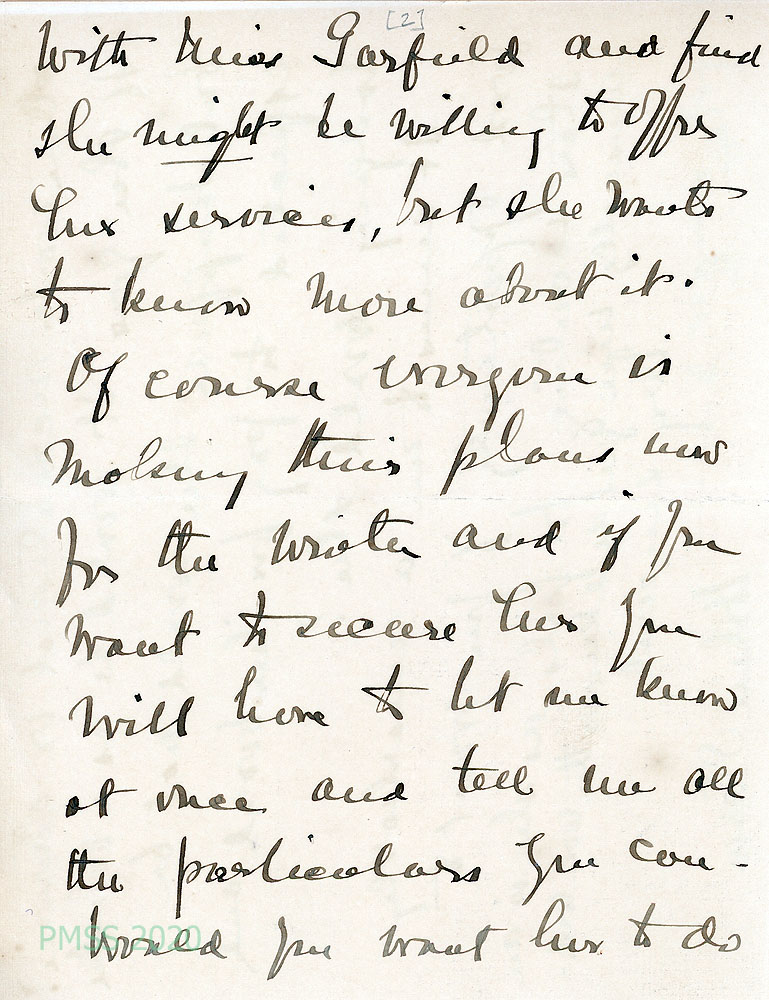 [2]
With Miss Garfield and find
she might be willing to offer
her services, but she wants
to know more about it.
Of course everyone is
making their plans now
for the winter and if you
want to secure her you
will have to let me know
at once and tell me all
the particulars you can -
Would you want her to do
PMSS 2020